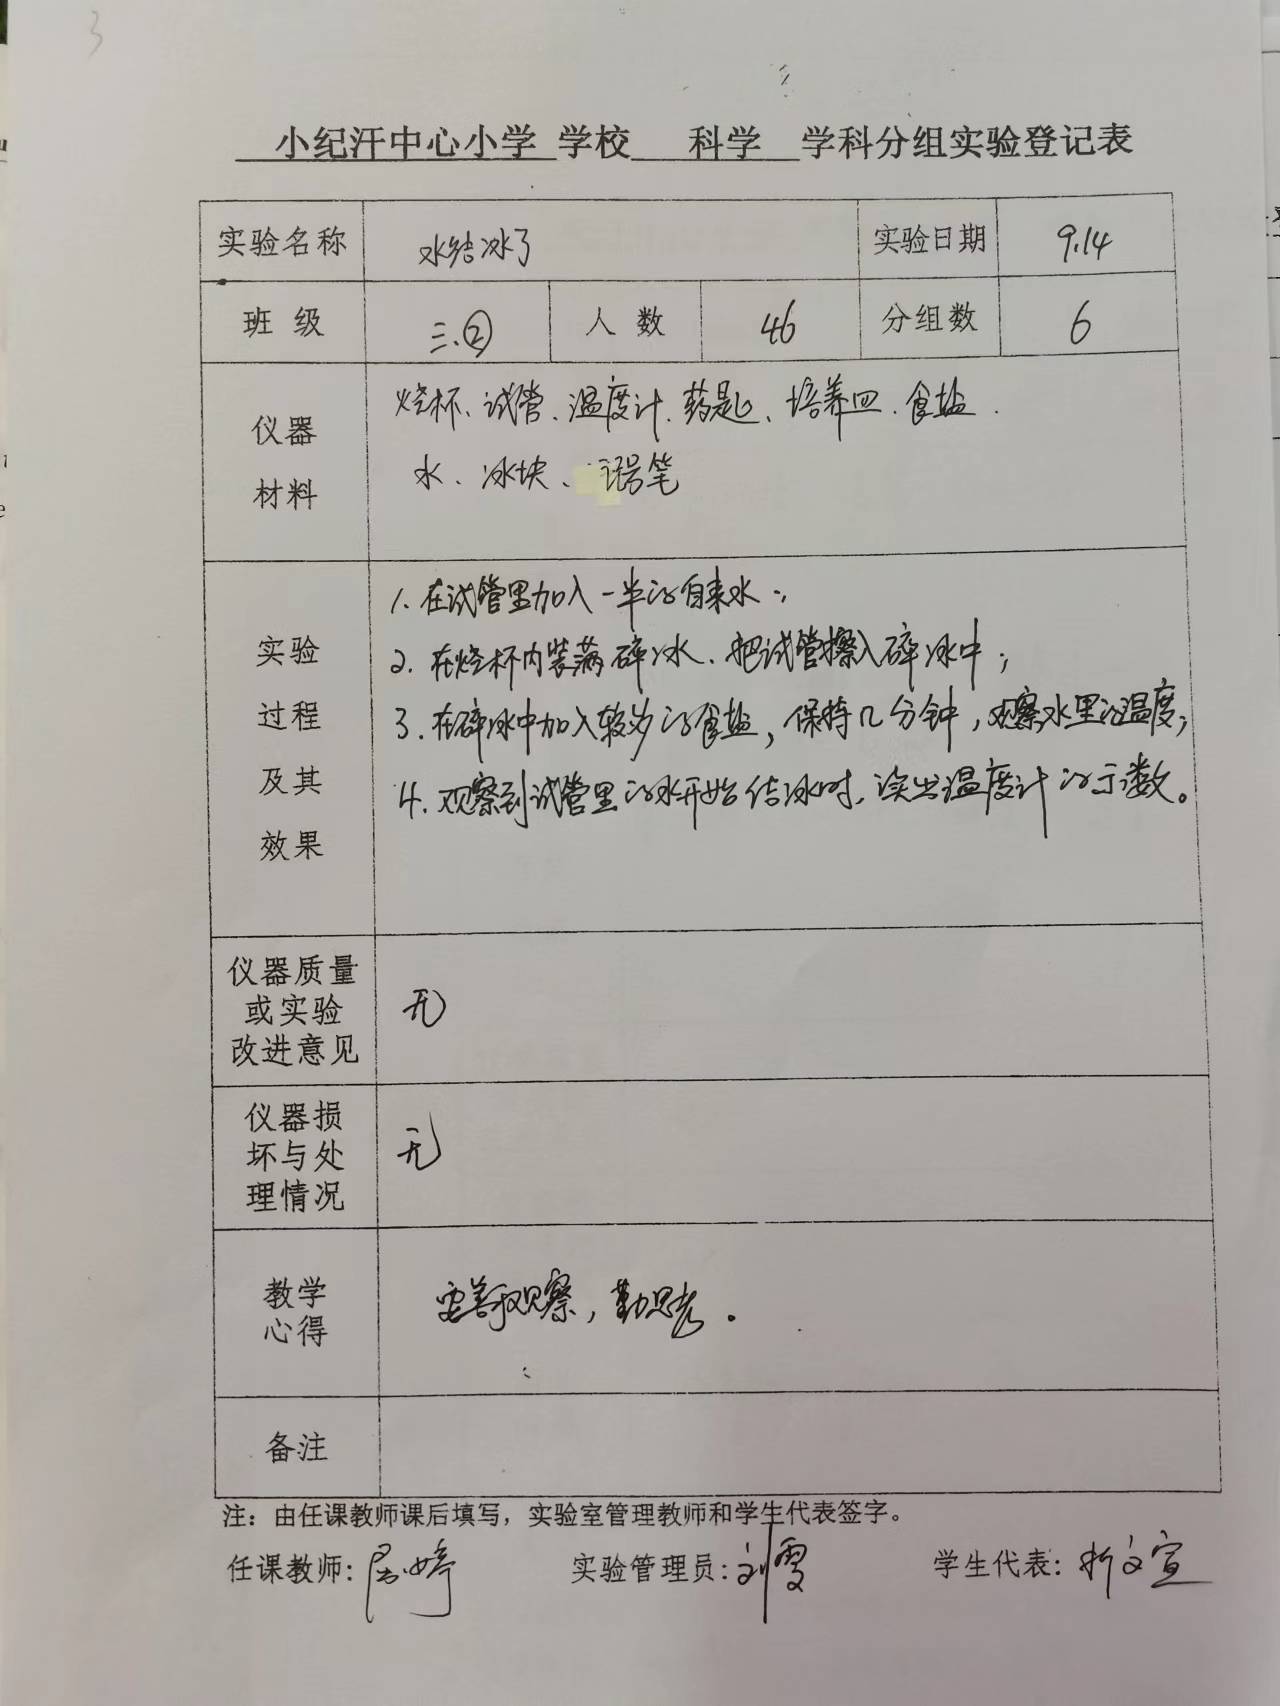 3
小纪汗中心小学 学校 科学 学科分组实验登记表
实验名称 水结冰了 实验日期 9.14
班 级 三.② 人 数 46 分组数 6
仪器
材料
烧杯、试管、温度计、药匙、培养皿、食盐.
水、冰块、铅笔
实验
过程
及其
效果
1. 在试管里加入一半的自来水;
2. 在烧杯内装满碎冰、把试管擦入碎冰中;
3. 在碎冰中加入较多的食盐,保持几分钟,观察水里的温度;
4. 观察到试管里的水开始结冰时,读出温度计的示数。
仪器质量
或实验
改进意见
无
仪器损
坏与处
理情况
无
教学
心得
要善于观察,勤思考。
备注
注:由任课教师课后填写,实验室管理教师和学生代表签字。
任课教师:屈婷 实验管理员:刘雯 学生代表:折文宣